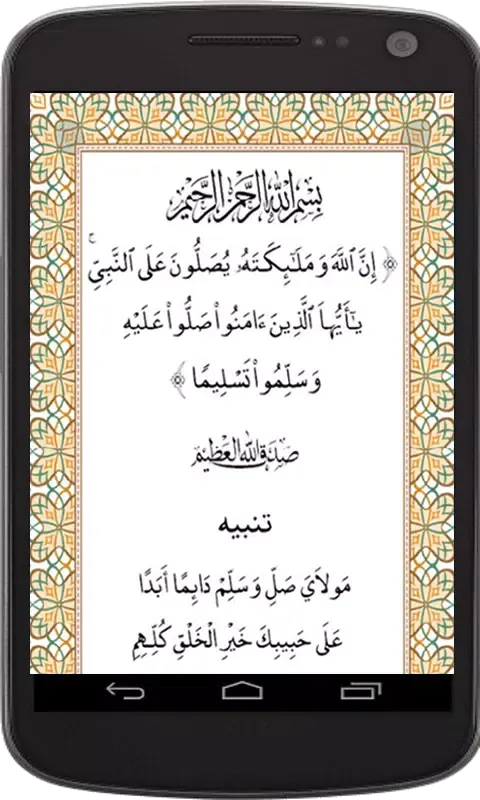 بِسْمِ اللهِ الرَّحْمٰنِ الرَّحِيْمِ
﴿ إِنَّ ٱللَّهَ وَمَلَٰٓئِكَتَهُۥ يُصَلُّونَ عَلَى ٱلنَّبِىِّۚ
يَٰٓأَيُّهَا ٱلَّذِينَ ءَامَنُوا۟ صَلُّوا۟ عَلَيْهِ
وَسَلِّمُوا۟ تَسْلِيمًا ﴾
صَدَقَ اللهُ العَظِيْم
تنبيه
مَوْلَايَ صَلِّ وَسَلِّمْ دَائِمًا أَبَدًا
عَلَى حَبِيبِكَ خَيْرِ الْخَلْقِ كُلِّهِمِ